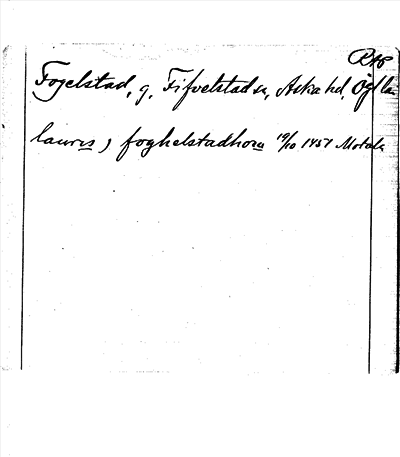 RAP
Fogelstad, g, Fifvelstad sn, Aska hd, Ögl
lauris j foghelstadhom 19/10 1457 Motala